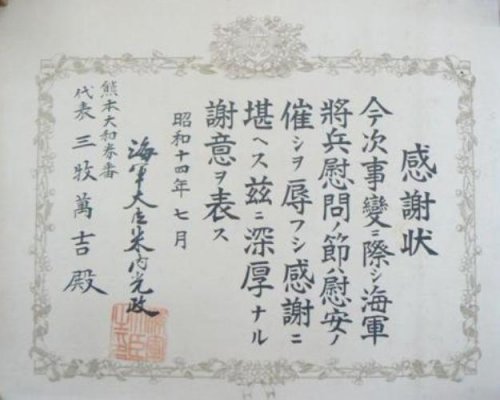 感謝状
今次事變ニ際シ海軍
將兵慰問ノ節ハ慰安ノ
催シヲ辱フシ感謝ニ
堪ヘス茲ニ深厚ナル
謝意ヲ表ス
昭和十四年七月
海軍大臣米内光政
熊本大和券番
代表三牧萬吉殿